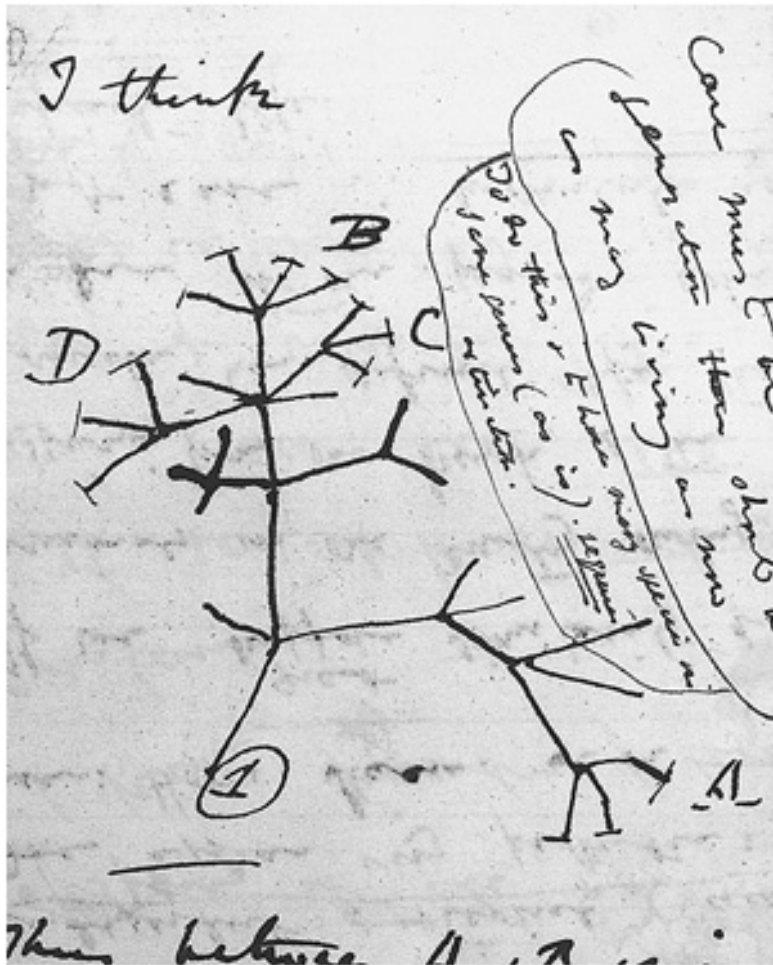 I think
B
D
C
1
A
Case must be
generation then should
as many living as now
To do this & to have many species in
same genus (as is). requires
extinction.
Thus between A & B